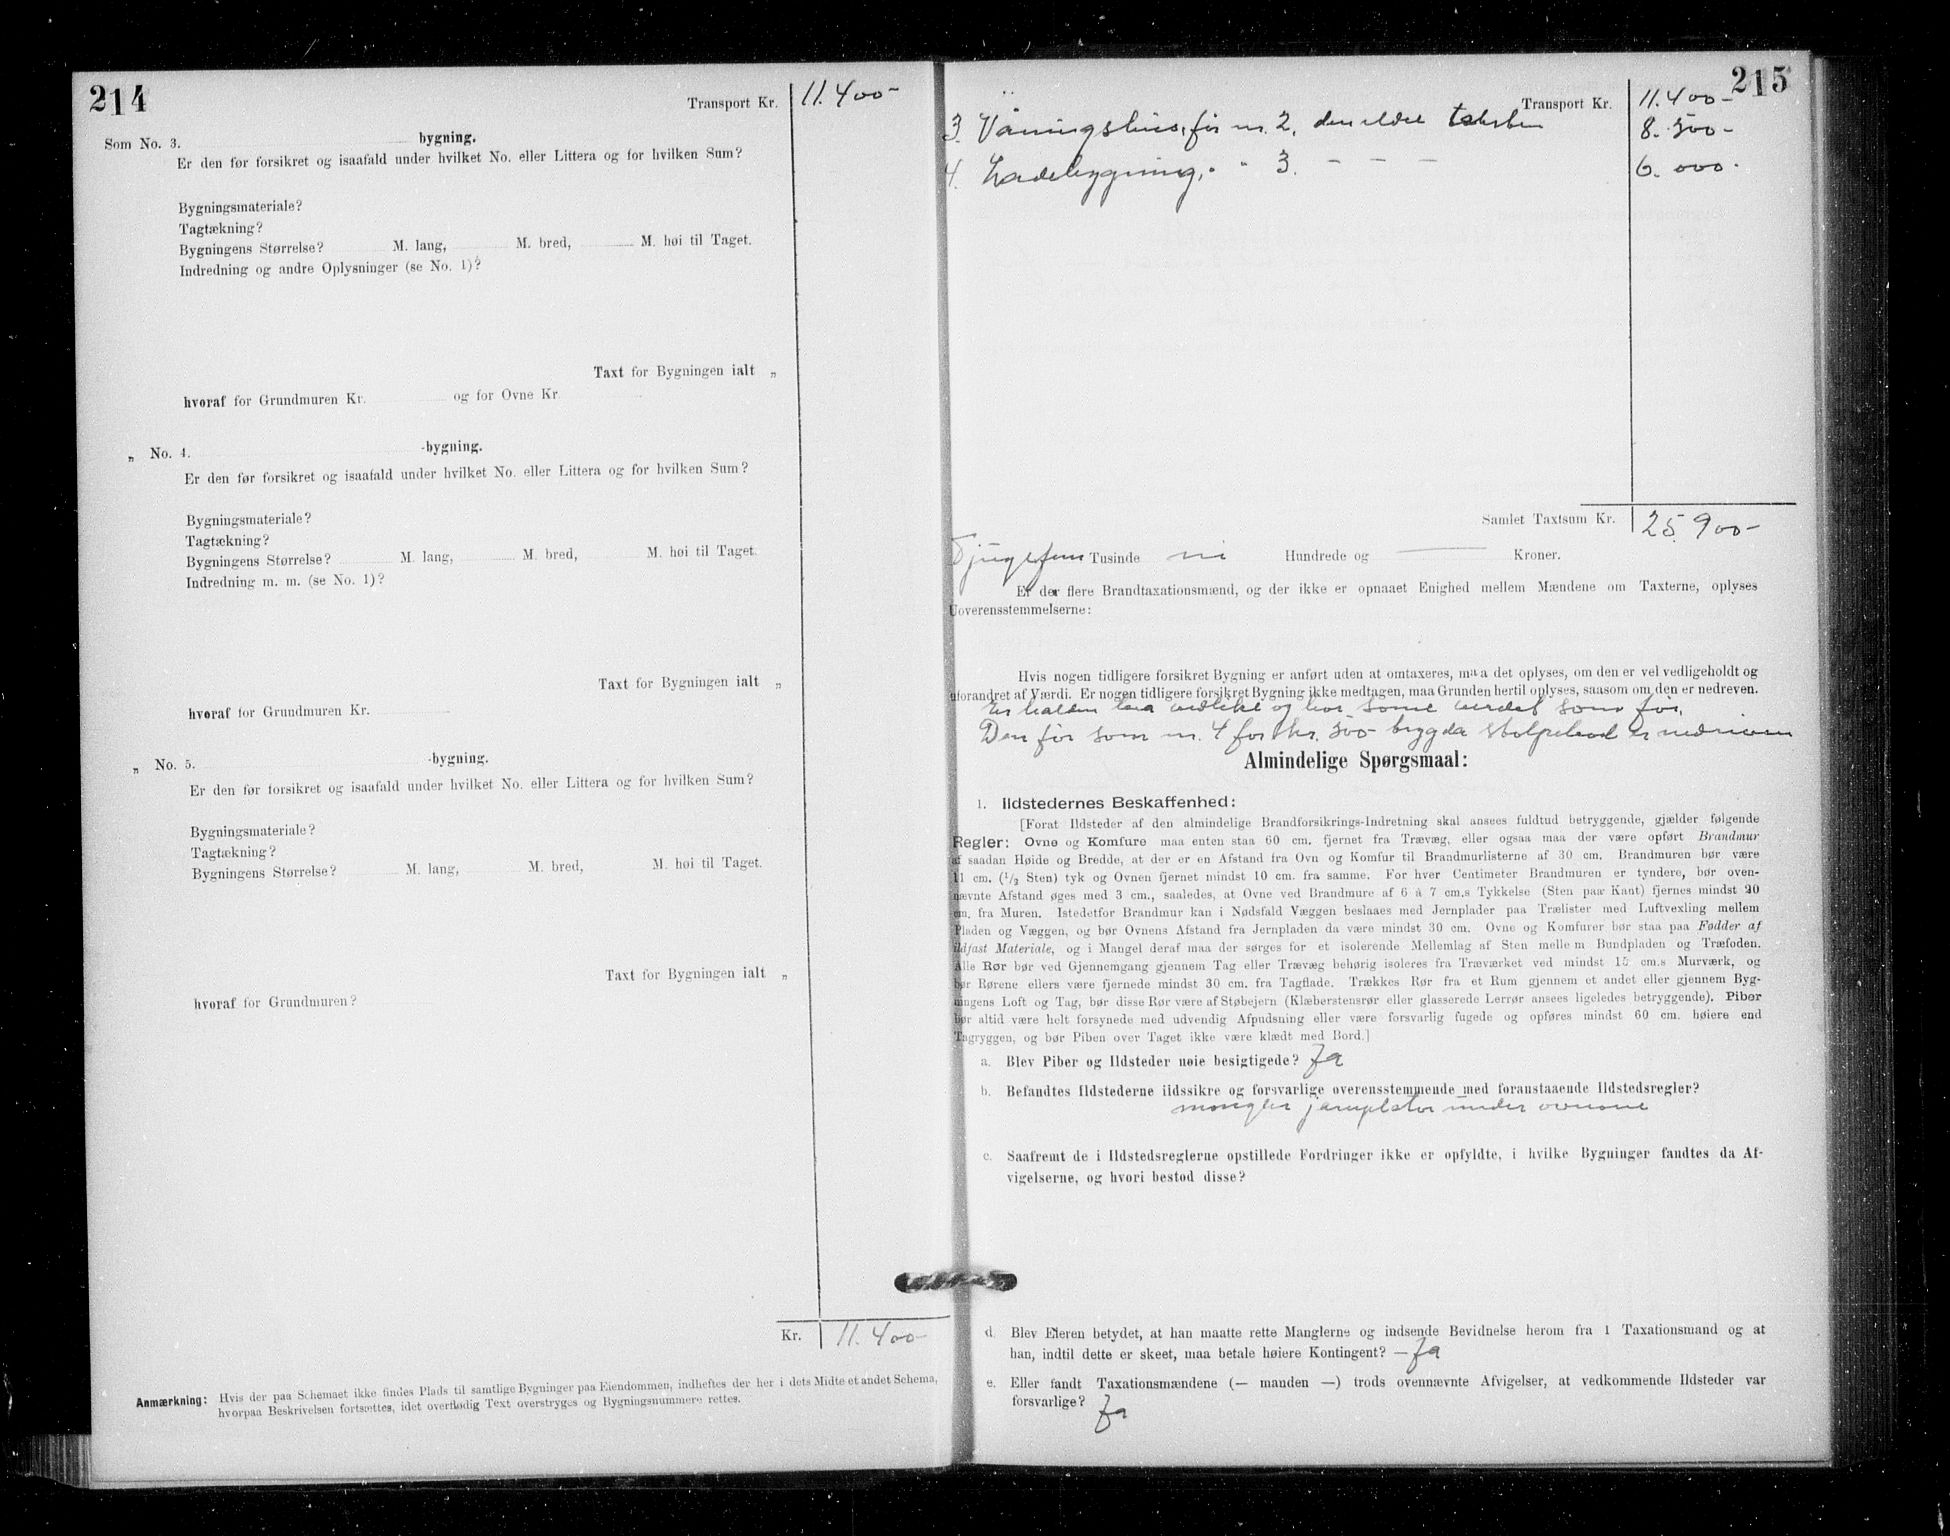 214
Transport Kr. 11.400-
Som No. 3. bygning.
Er den før forsikret og isaafald under hvilket No. eller Littera og for hvilken Sum?
Bygningsmateriale?
Tagtækning?
Bygningens Størrelse? M. lang, M. bred, M. høi til Taget.
Indredning og andre Oplysninger (se No. 1)?
Taxt for Bygningen ialt „
hvoraf for Grundmuren Kr. og for Ovne Kr
„ No. 4. -bygning.
Er den før forsikret og isaafald under hvilket No. eller Littera og for hvilken Sum?
Bygningsmateriale?
Tagtækning?
Bygningens Størrelse? M. lang, M. bred, M. høi til Taget.
Indredning m. m. (se No. 1)?
Taxt for Bygningen ialt „
hvoraf for Grundmuren Kr.
„ No. 5. -bygning.
Er den før forsikret og isaafald under hvilket No. eller Littera og for hvilken Sum?
Bygningsmateriale?
Tagtækning?
Bygningens Størrelse? M. lang, M. bred, M. høi til Taget.
Taxt for Bygningen ialt „
hvoraf for Grundmuren?
Kr. 11.400-
Anmærkning: Hvis der paa Schemaet ikke findes Plads til samtlige Bygninger paa Eiendommen, indheftes der her i dets Midte et andet Schema,
hvorpaa Beskrivelsen fortsættes, idet overflødig Text overstryges og Bygningsnummere rettes.
215
Transport Kr. 11.400-
3. Våningshus, før nr. 2, den eldre taksten 8.500-
4. Ladebygning, " " 3. - - - 6.000-
Samlet Taxtsum Kr. 25.900-
Tjugefem Tusinde ni Hundrede og — Kroner.
Er der flere Brandtaxationsmænd, og der ikke er opnaaet Enighed mellem Mændene om Taxterne, oplyses
Uoverensstemmelserne:
Hvis nogen tidligere forsikret Bygning er anført uden at omtaxeres, maa det oplyses, om den er vel vedligeholdt og
uforandret af Værdi. Er nogen tidligere forsikret Bygning ikke medtagen, maa Grunden hertil oplyses, saasom om den er nedreven.
Er halden vedlike og har same verdet som før.
Den før som nr. 4 for kr. 500- bygda stolpebod er nedriven
Almindelige Spørgsmaal:
1. Ildstedernes Beskaffenhed:
[Forat Ildsteder af den almindelige Brandforsikrings-Indretning skal ansees fuldtud betryggende, gjælder følgende
Regler: Ovne og Komfure maa enten staa 60 cm. fjernet fra Trævæg, eller ogsaa maa der være opført Brandmur
af saadan Høide og Bredde, at der er en Afstand fra Ovn og Komfur til Brandmurlisterne af 30 cm. Brandmuren bør være
11 cm. (1/2 Sten) tyk og Ovnen fjernet mindst 10 cm. fra samme. For hver Centimeter Brandmuren er tyndere, bør oven-
nævnte Afstand øges med 3 cm., saaledes, at Ovne ved Brandmure af 6 à 7 cm.s Tykkelse (Sten paa Kant) fjernes mindst 20
cm. fra Muren. Istedetfor Brandmur kan i Nødsfald Væggen beslaaes med Jernplader paa Trælister med Luftvexling mellem
Pladen og Væggen, og bør Ovnens Afstand fra Jernpladen da være mindst 30 cm. Ovne og Komfurer bør staa paa Fødder af
ildfast Materiale, og i Mangel deraf maa der sørges for et isolerende Mellemlag af Sten mellem Bundpladen og Træfoden.
Alle Rør bør ved Gjennemgang gjennem Tag eller Trævæg behørig isoleres fra Træværket ved mindst 15 cm.s Murværk, og
bør Rørene ellers være fjernede mindst 30 cm. fra Tagflade. Trækkes Rør fra et Rum gjennem et andet eller gjennem Byg-
ningens Loft og Tag, bør disse Rør være af Støbejern (Klæberstensrør eller glasserede Lerrør ansees ligeledes betryggende). Piber
bør altid være helt forsynede med udvendig Afpudsning eller være forsvarlig fugede og opføres mindst 60 cm. høiere end
Tagryggen, og bør Piben over Taget ikke være klædt med Bord.]
a. Blev Piber og Ildsteder nøie besigtigede? Ja
b. Befandtes Ildstederne ildssikre og forsvarlige overensstemmende med foranstaaende Ildstedsregler?
mangler jarnplator under ovnane
c. Saafremt de i Ildstedsreglerne opstillede Fordringer ikke er opfyldte, i hvilke Bygninger fandtes da Af-
vigelserne, og hvori bestod disse?
d. Blev Eieren betydet, at han maatte rette Manglerne og indsende Bevidnelse herom fra 1 Taxationsmand og at
han, indtil dette er skeet, maa betale høiere Kontingent? — Ja
e. Eller fandt Taxationsmændene (— manden —) trods ovennævnte Afvigelser, at vedkommende Ildsteder var
forsvarlige? Ja